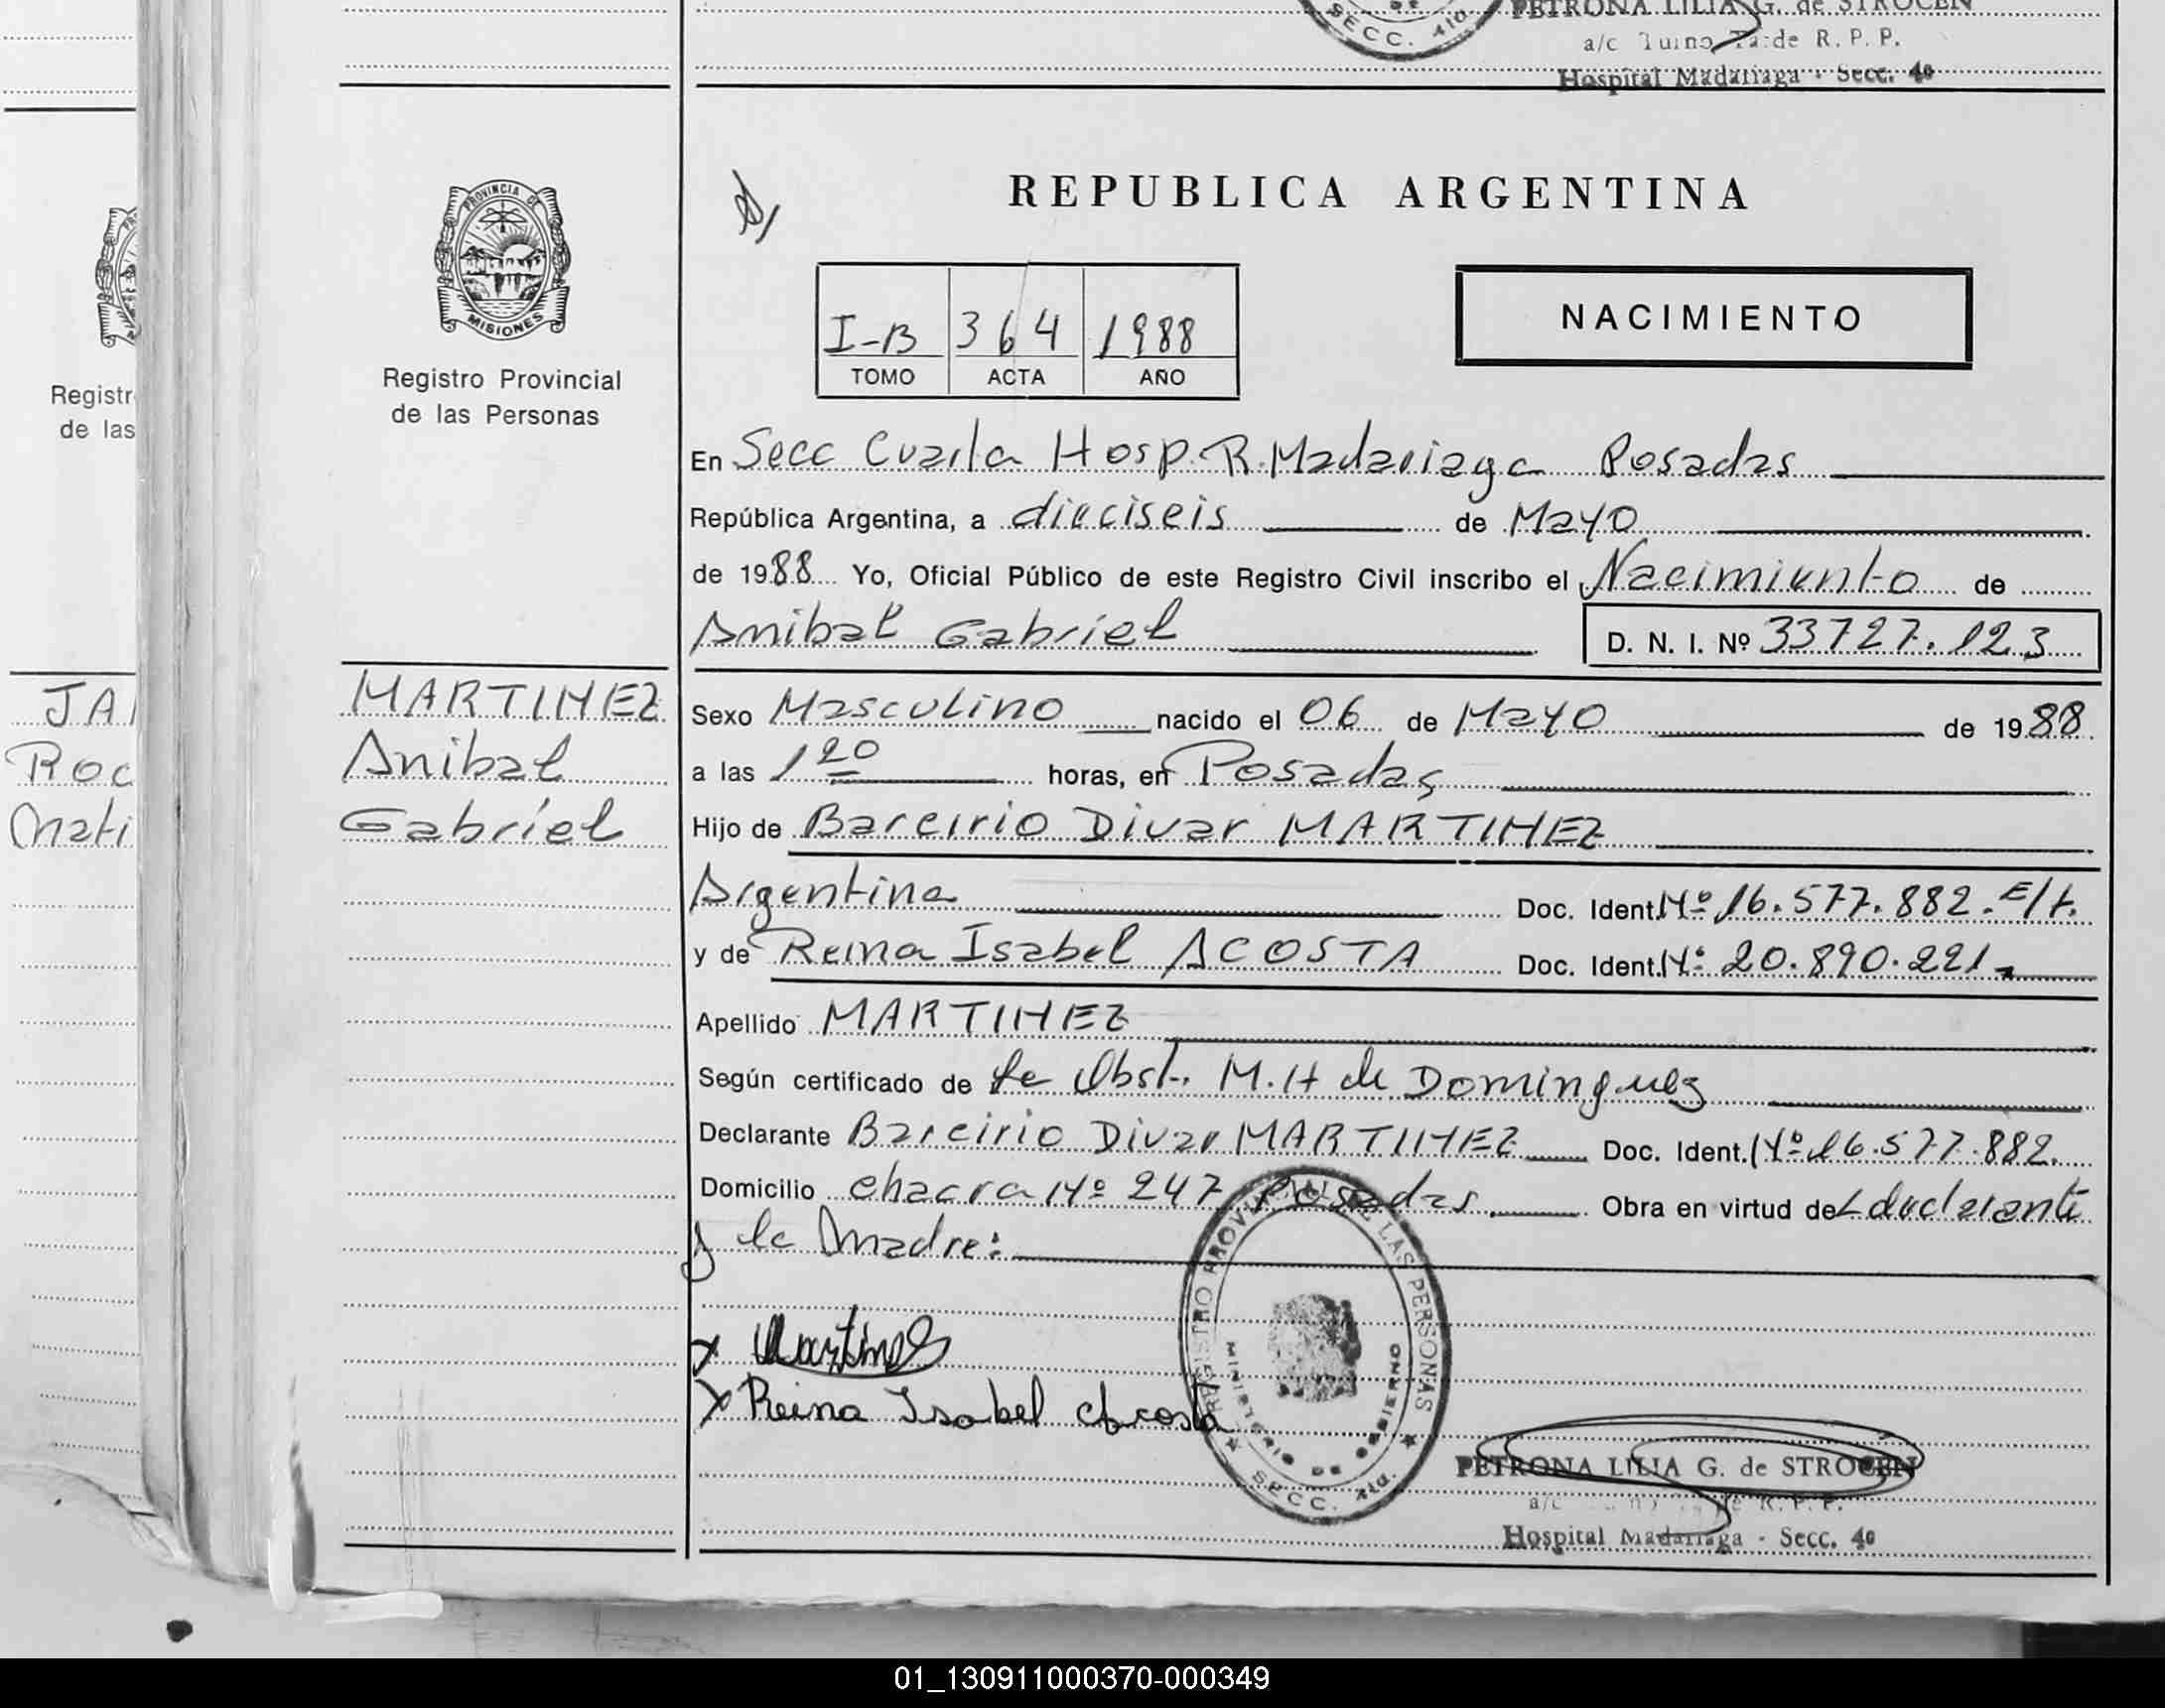 PETRONA LILIA G. de STROCEN
SECC. 4ta.
a/c Turno Tarde R. P. P.
Hospital Madariaga - Secc. 4a
PROVINCIA DE
MISIONES
Registro Provincial
de las Personas
REPUBLICA ARGENTINA
I-B 364 1988
TOMO ACTA AÑO
NACIMIENTO
Registr
de las
En Secc Cuarta Hosp. R. Madariaga Posadas
República Argentina, a dieciseis de Mayo
de 1988 Yo, Oficial Público de este Registro Civil inscribo el Nacimiento de
Anibal Gabriel D. N. I. Nº 33727.123
JA
Roc
Mati
MARTINEZ
Anibal
Gabriel
Sexo Masculino nacido el 06 de Mayo de 1988
a las 1 20 horas, en Posadas
Hijo de Bareirio Divar MARTINEZ
Argentina Doc. Ident. Nº 16.577.882. E/t.
y de Reina Isabel ACOSTA Doc. Ident. Nº 20.890.221
Apellido MARTINEZ
Según certificado de la Obst. M. H de Dominguez
Declarante Bareirio Divar MARTINEZ Doc. Ident. Nº 16.577.882.
Domicilio chacra Nº 247 Posadas Obra en virtud del declarante
y la Madre:
x Martinez
x Reina Isabel Acosta
REGISTRO PROVINCIAL DE LAS PERSONAS
MINISTERIO DE GOBIERNO
SECC. 4ta.
PETRONA LILIA G. de STROCEN
a/c R. P. P.
Hospital Madariaga - Secc. 4a
01_130911000370-000349